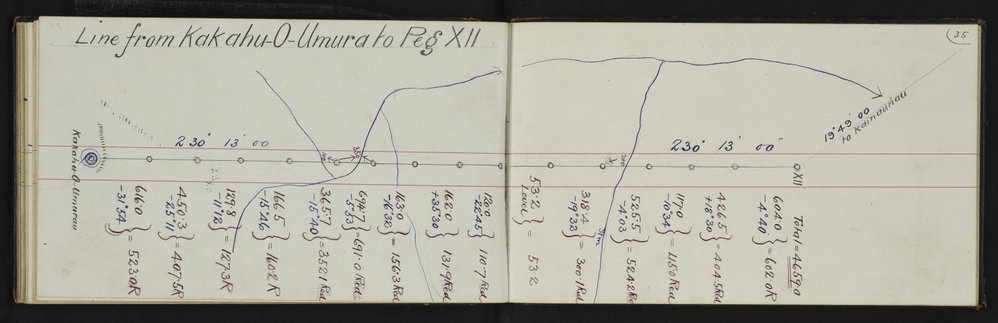 Line from Kakahu-O-Umura to Peg XII
35
Kakahu-O-Umurau
230° 13' 00
230° 13' 00"
19° 49' 00
to Kaindunau
XII
616.0
-31°54' } = 523.0R
450.3
-25°11' } = 407.5R
129.8
-11°12' } = 127.3R
166.5
-15°46' } = 160.2R
365.7
-15°40' } = 352.1 Red
694.7
-5°53' } = 691.0 Red
163.0
-16°32' } = 156.3 Red
162.0
+35°30' } 131.9 Red
120.0
-22°45' } 110.7 Red
53.2
Level } = 53.2
318.4
-19°32' } = 300.1 Red
Stm.
525.5
-4°03' } = 524.2 Red
117.0
-10°34' } = 115.0 Red
426.5
+18°30' } = 404.5 Red
604.0
-4°40' } 602.0R
Total = 4659.0